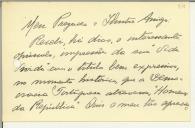 Meu Prezado e Ilustre Amigo.
Recebi, há dias, o interessante
opusculo, impressão da sua
com o titulo bem expressivo,
no momento historico que a Demo-
cracia Portuguesa atravessa, "Homens
da Republica". Quis o meu